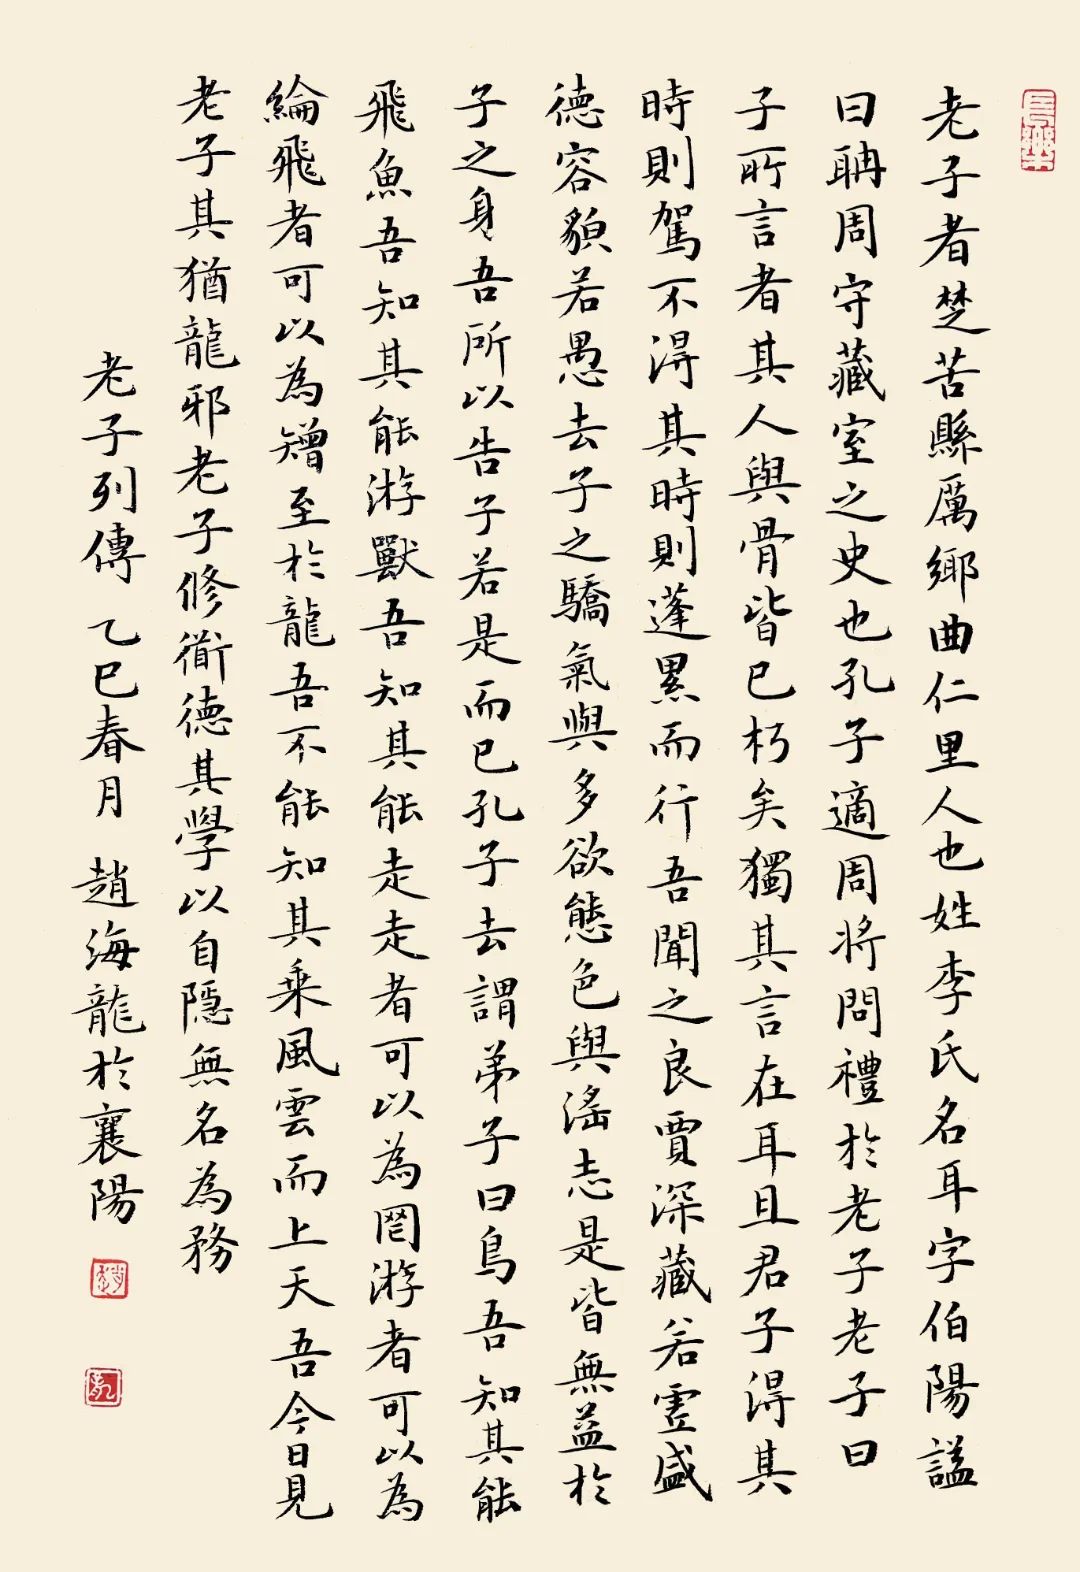 老子者楚苦縣厲鄉曲仁里人也姓李氏名耳字伯陽謚
曰聃周守藏室之史也孔子適周將問禮於老子老子曰
子所言者其人與骨皆已朽矣獨其言在耳且君子得其
時則駕不得其時則蓬累而行吾聞之良賈深藏若虛盛
德容貌若愚去子之驕氣與多欲態色與淫志是皆無益於
子之身吾所以告子若是而已孔子去謂弟子曰鳥吾知其能
飛魚吾知其能游獸吾知其能走走者可以為罔游者可以為
綸飛者可以為矰至於龍吾不能知其乘風雲而上天吾今日見
老子其猶龍邪老子修道德其學以自隱無名為務
老子列傳 乙巳春月 趙海龍於襄陽
長樂
趙